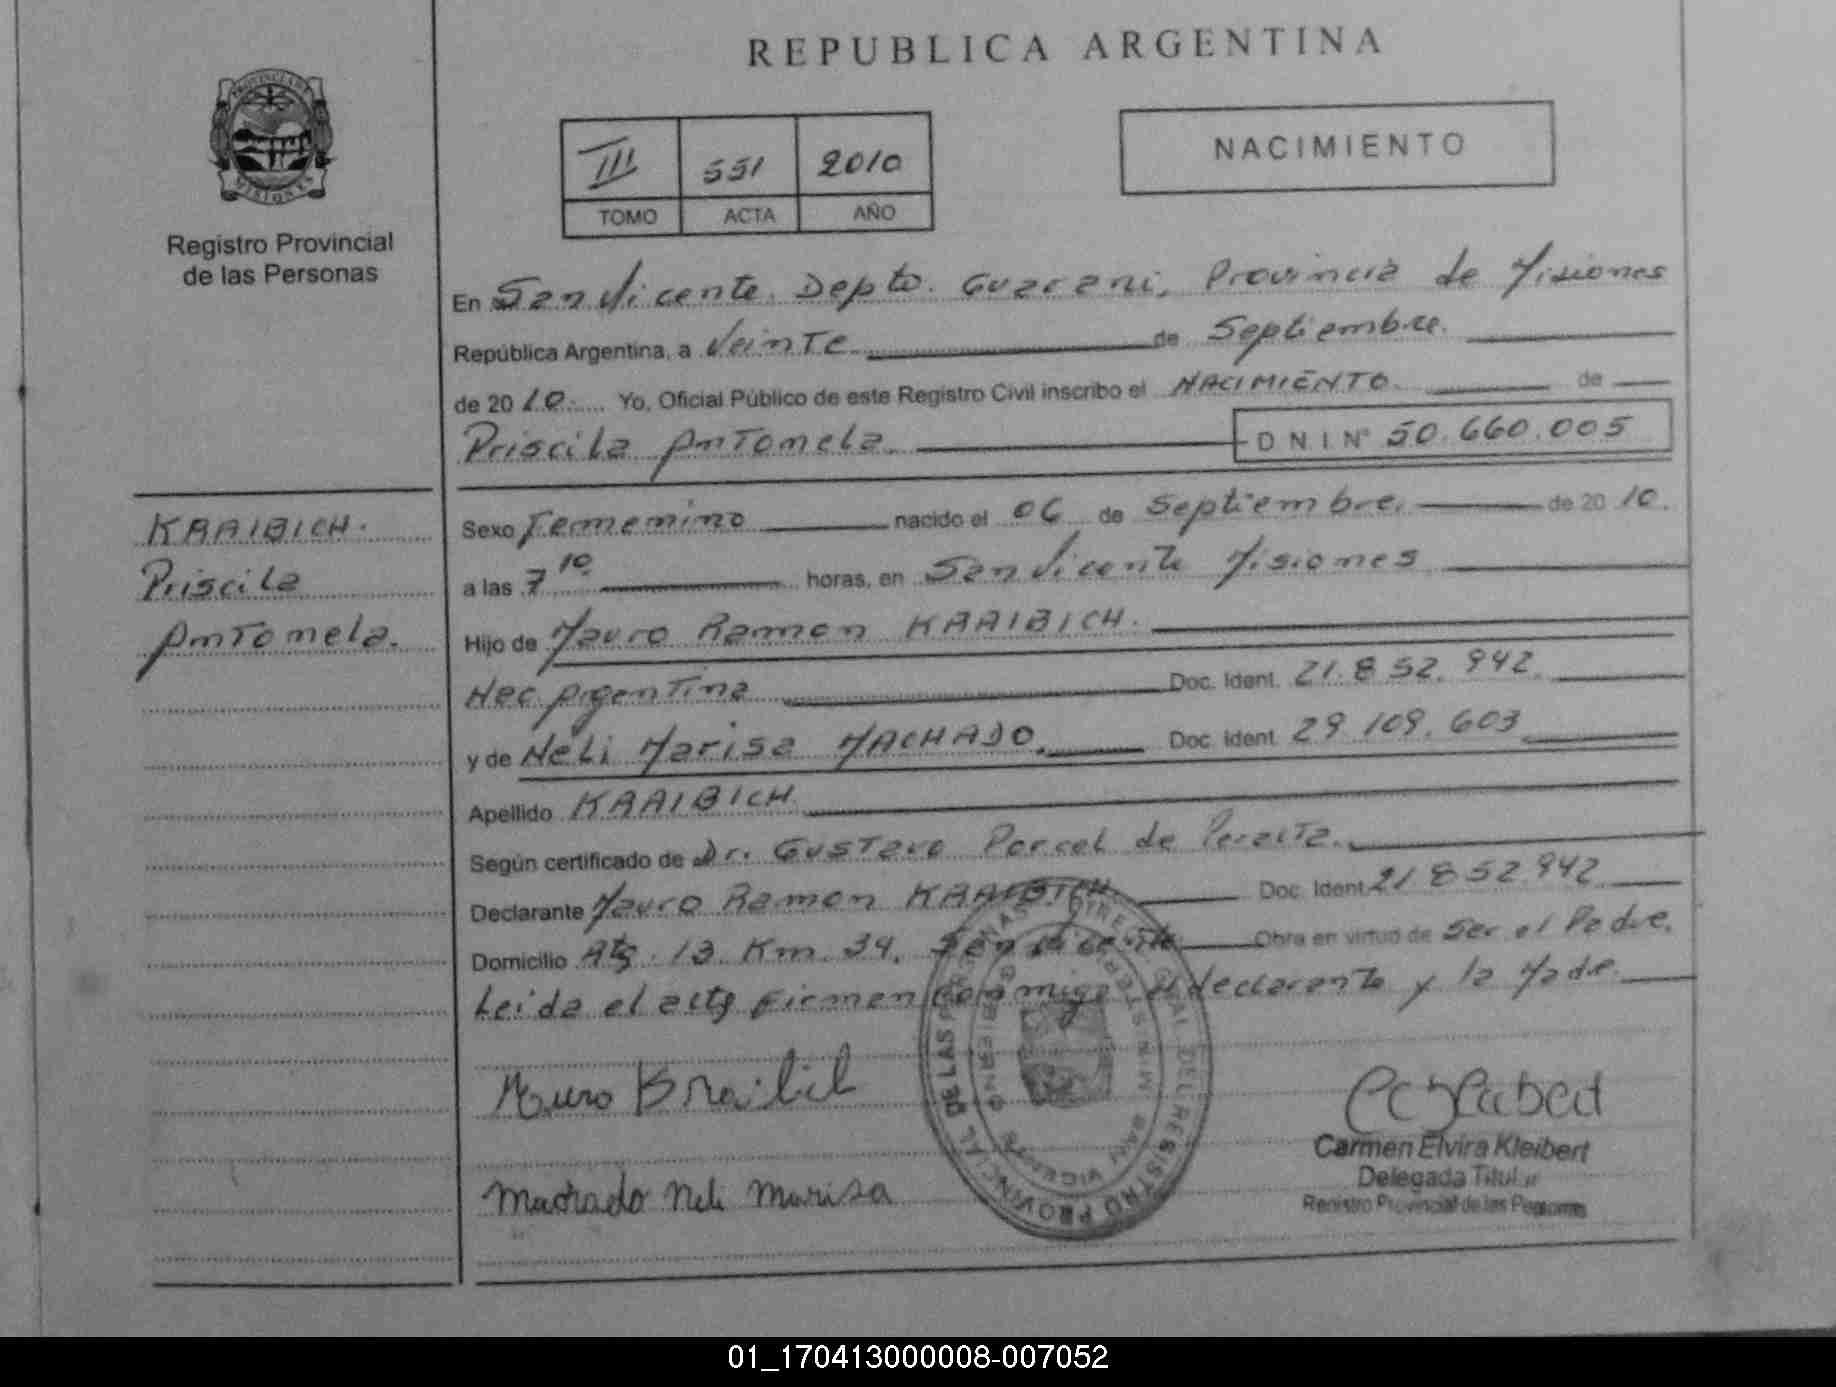 REPUBLICA ARGENTINA
PROVINCIA DE
MISIONES
Registro Provincial
de las Personas
III 551 2010
TOMO ACTA AÑO
NACIMIENTO
En San Vicente. Depto. Guarani, Provincia de Misiones
República Argentina, a Veinte de Septiembre.
de 2010. Yo, Oficial Público de este Registro Civil inscribo el NACIMIENTO. de
Priscila Antonela. D.N.I. Nº 50.660.005
KRAIBICH.
Priscila
Antonela.
Sexo Femenino nacido el 06 de Septiembre. de 2010.
a las 7 10 horas, en San Vicente Misiones
Hijo de Mauro Ramon KRAIBICH.
Nac. Argentina Doc. Ident. 21.852.942.
y de Neli Marisa MACHADO. Doc. Ident. 29.109.603
Apellido KRAIBICH
Según certificado de Dr. Gustavo Porcel de Peralta.
Declarante Mauro Ramon KRAIBICH Doc. Ident. 21.852.942
Domicilio Km. 34. San Vicente Obra en virtud de Ser el Padre.
Leida el acta firman conmigo el declarante y la Madre.
Mauro
Machado Neli Marisa
REGISTRO PROVINCIAL DE LAS PERSONAS
SAN VICENTE
Carmen Elvira Kleibert
Delegada Titular
Registro Provincial de las Personas
01_170413000008-007052